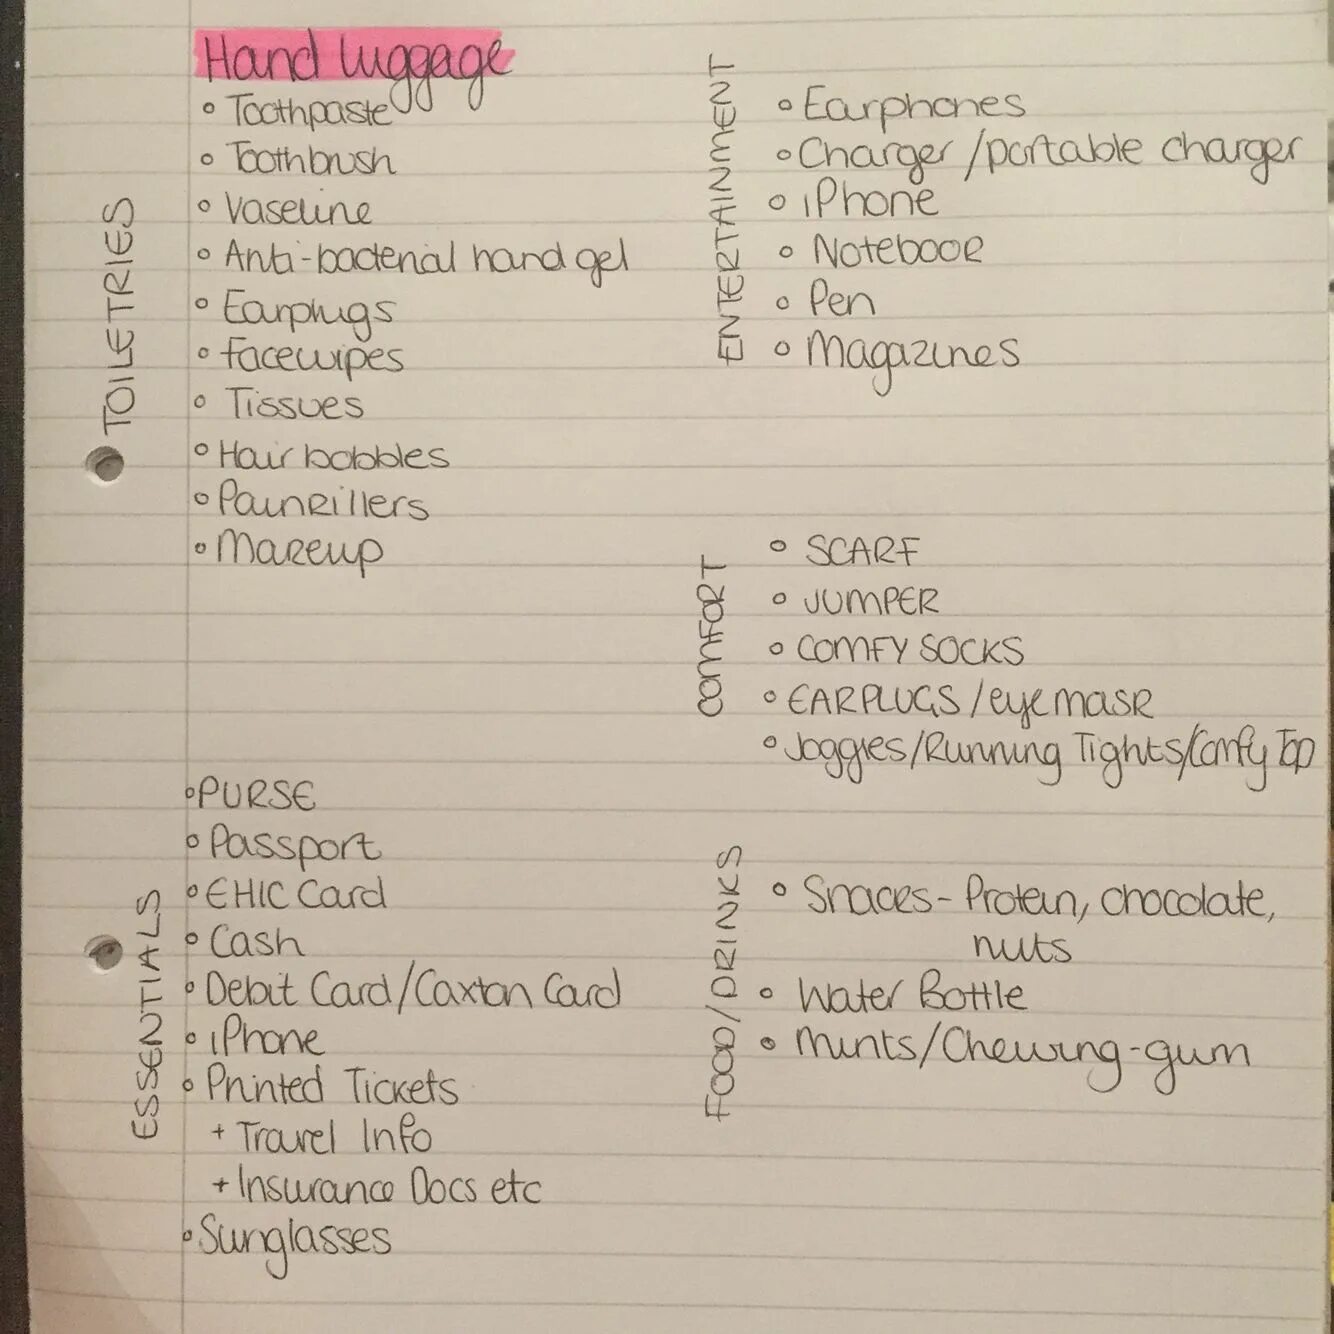 Hand luggage
TOILETRIES
Toothpaste
Toothbrush
Vaseline
Anti-bacterial hand gel
Earplugs
Facewipes
Tissues
Hair bobbles
Painkillers
Makeup
ESSENTIALS
PURSE
Passport
EHIC Card
Cash
Debit Card/Caxton Card
iPhone
Printed Tickets
+ Travel Info
+ Insurance Docs etc
Sunglasses
ENTERTAINMENT
Earphones
Charger/portable charger
iPhone
Notebook
Pen
Magazines
COMFORT
SCARF
JUMPER
COMFY SOCKS
EARPLUGS/eye mask
Joggies/Running Tights/Comfy Top
FOOD/DRINKS
Snacks- Protein, chocolate,
nuts
Water Bottle
Mints/Chewing-gum